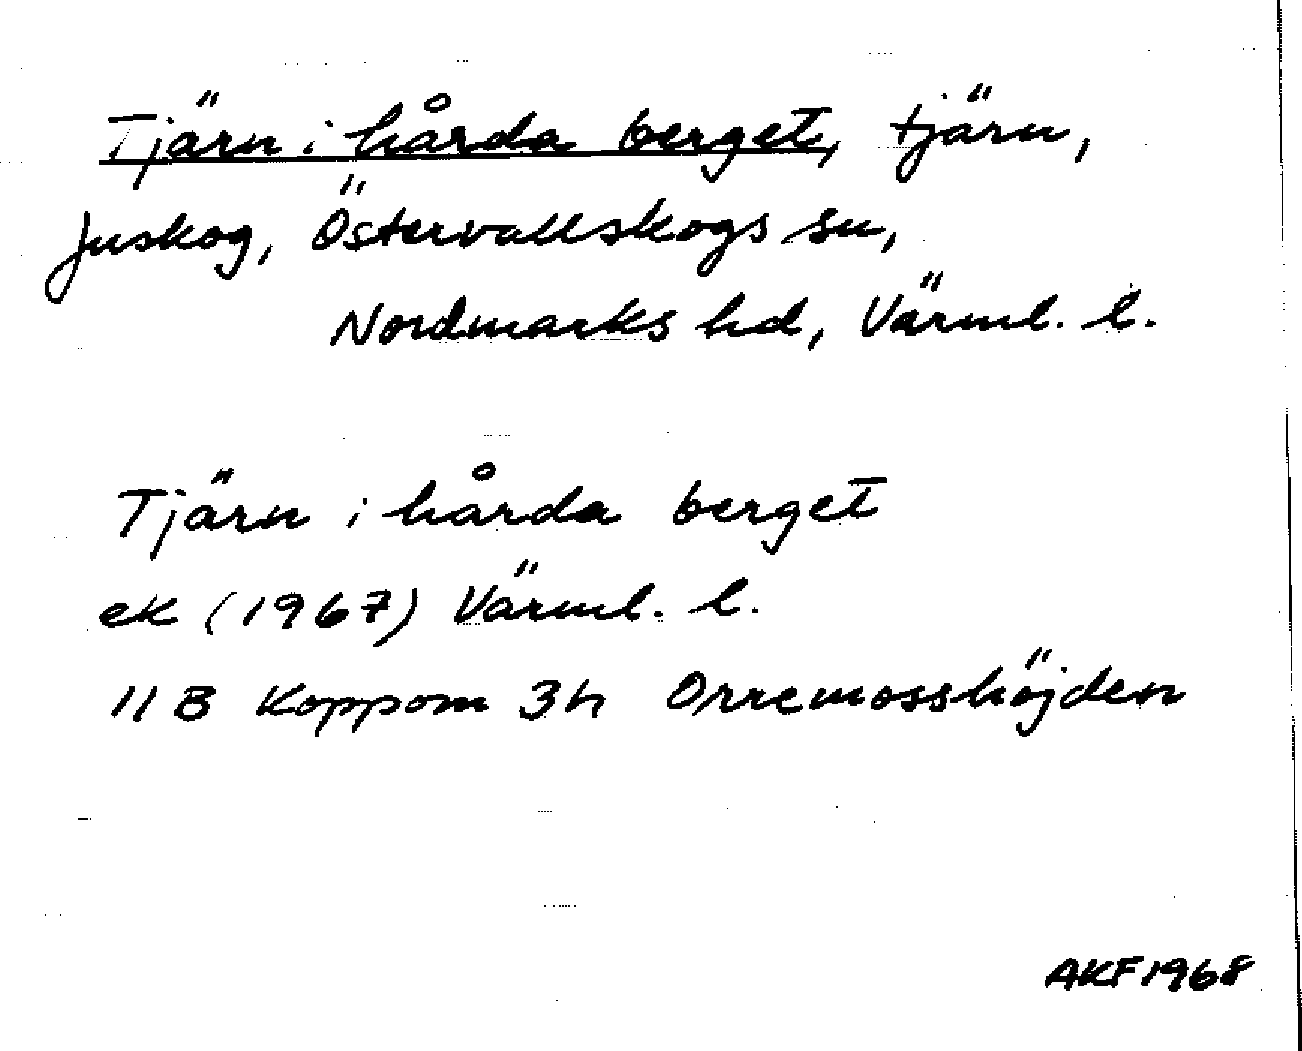 Tjärn i hårda berget, tjärn,
Juskog, Östervallskogs sn,
Nordmarks hd, Värml. l.
Tjärn i hårda berget
ek (1967) Värml. l.
11 B Koppom 3h Orremosshöjden
AKF 1968